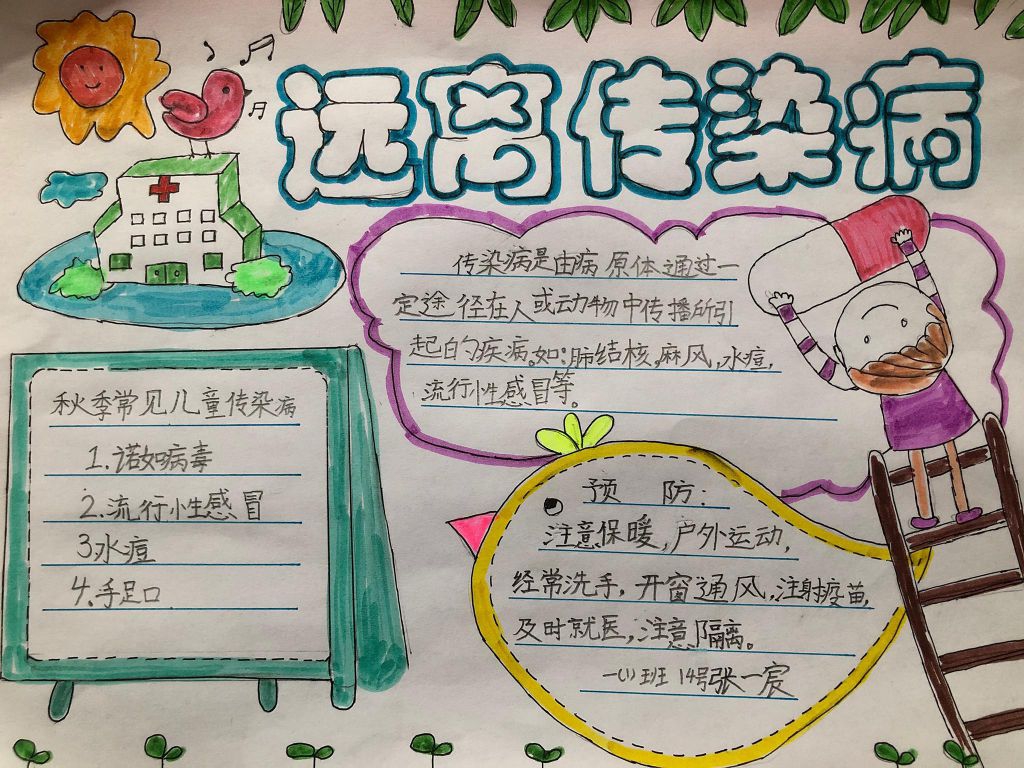 远离传染病
传染病是由病原体通过一
定途径在人或动物中传播所引
起的疾病。如:肺结核,麻风,水痘,
流行性感冒等。
秋季常见儿童传染病
1.诺如病毒
2.流行性感冒
3水痘
4.手足口
预 防:
注意保暖,户外运动,
经常洗手,开窗通风,注射疫苗,
及时就医,注意隔离。
一(1)班 14号张一宸